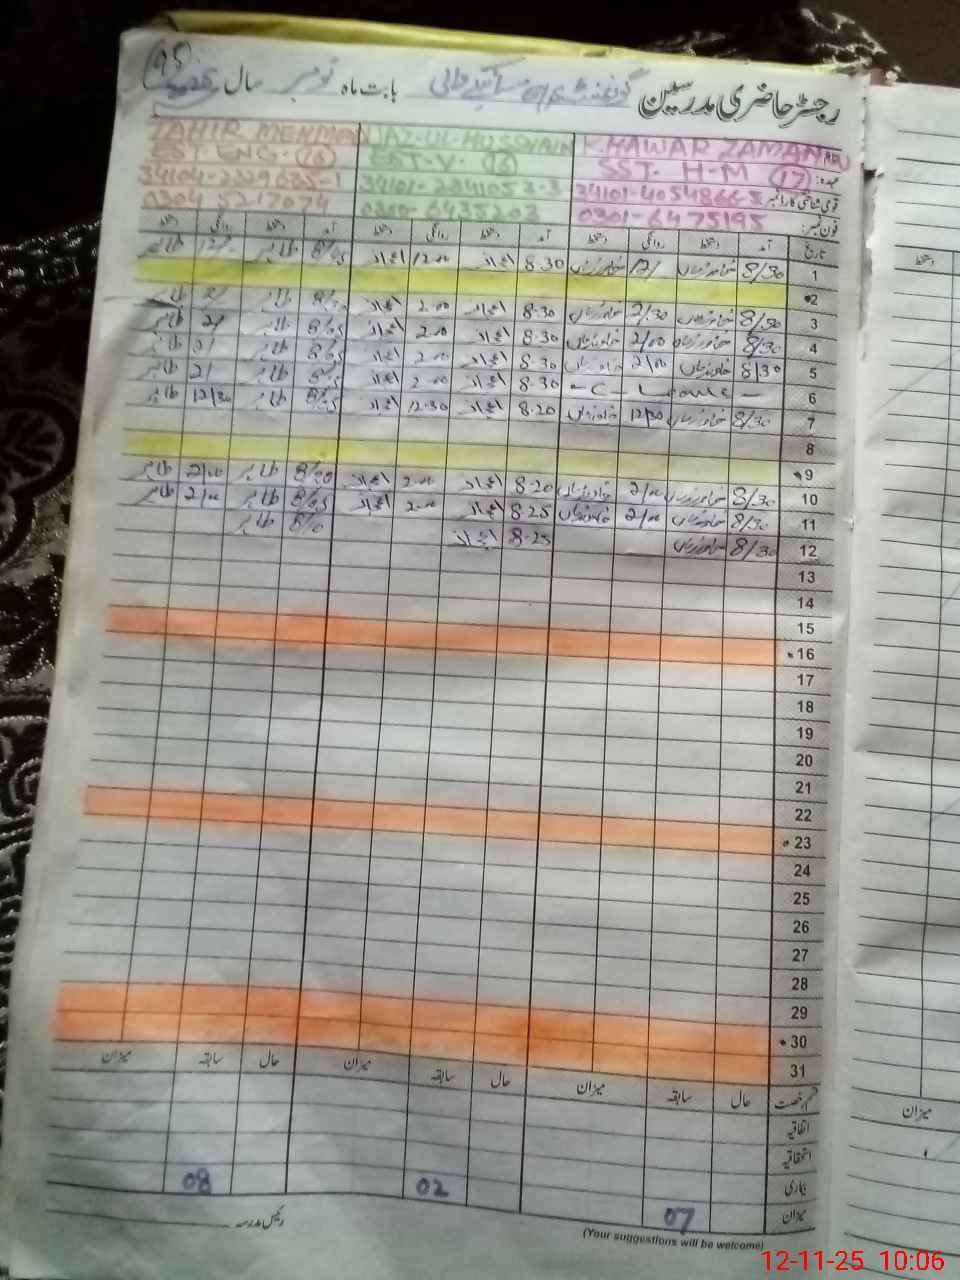 رجسٹر حاضری مدرسین گورنمنٹ بابت ماہ نومبر سال
KHAWAR ZAMAN
SST- H-M (17)
34101-4054866-5
0301-6475195
IJAZ-UL-HUSSNAIN
EST-V- (16)
34101-2341053-3
6435203
TAHIR MEHMOOD
EST-ENG- (16)
0304 5217074
عہدہ:
قومی شناختی کارڈ نمبر
فون نمبر:
تاریخ آمد دستخط روانگی دستخط آمد دستخط روانگی دستخط آمد دستخط روانگی دستخط
1 8/30 خاور زمان 12/ خاور زمان 8-30 اعجاز 12-00 اعجاز طاہر طاہر
2
3 8/30 خاور زمان 2/30 خاور زمان 8-30 اعجاز 2-00 اعجاز طاہر 2/ طاہر
4 8/30 خاور زمان 2/00 خاور زمان 8-30 اعجاز 2-00 اعجاز طاہر 2/ طاہر
5 8/30 خاور زمان 2/00 خاور زمان 8-30 اعجاز 2-00 اعجاز طاہر 2/ طاہر
6 -C- Leave - 8-30 اعجاز 2-00 اعجاز طاہر 2/ طاہر
7 8/30 خاور زمان 12/30 خاور زمان 8-20 اعجاز 12-30 اعجاز طاہر 12/30 طاہر
8
9
10 8/30 خاور زمان 2/00 خاور زمان 8-20 اعجاز 2-00 اعجاز 8/20 طاہر 2/00 طاہر
11 8/30 خاور زمان 2/00 خاور زمان 8-25 اعجاز 2-00 اعجاز 8/25 طاہر 2/00 طاہر
12 8/30 خاور زمان 8-25 اعجاز 8/10 طاہر
13
14
15
16
17
18
19
20
21
22
23
24
25
26
27
28
29
30
31
قسم رخصت حال سابقہ میزان حال سابقہ میزان حال سابقہ میزان
اتفاقیہ
استحقاقیہ
بیماری
میزان 07 02 08
رئیس مدرسہ
(Your suggestions will be welcome)
12-11-25 10:06